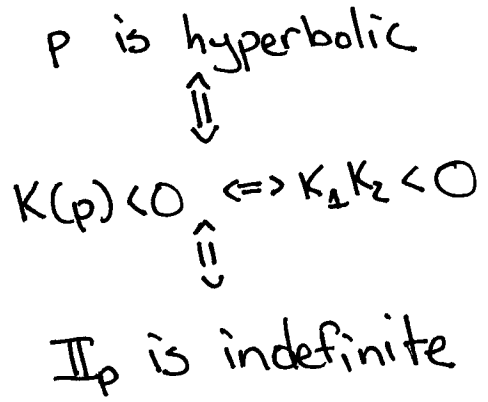 p is hyperbolic
⇕
K(p)<0 <=> K₁K₂<0
⇕
𝕀𝕀ₚ is indefinite